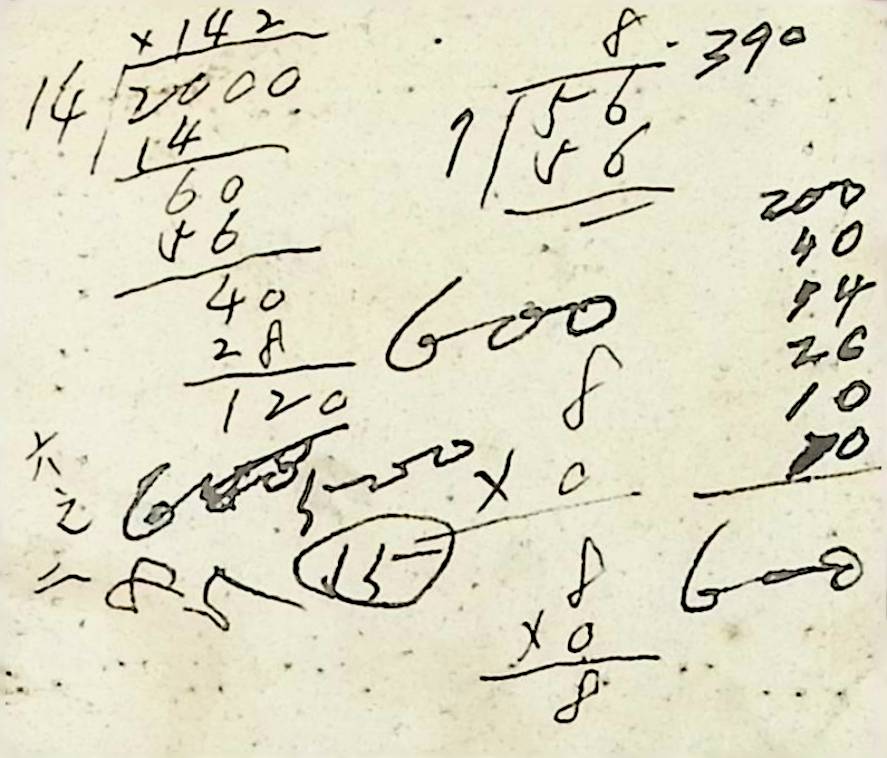 ×142
14 2000
14
60
56
40
28
120
8
7 56
56
390
600
8
× 0
8
× 0
8
200
40
26
10
600
六
之
二
85
15